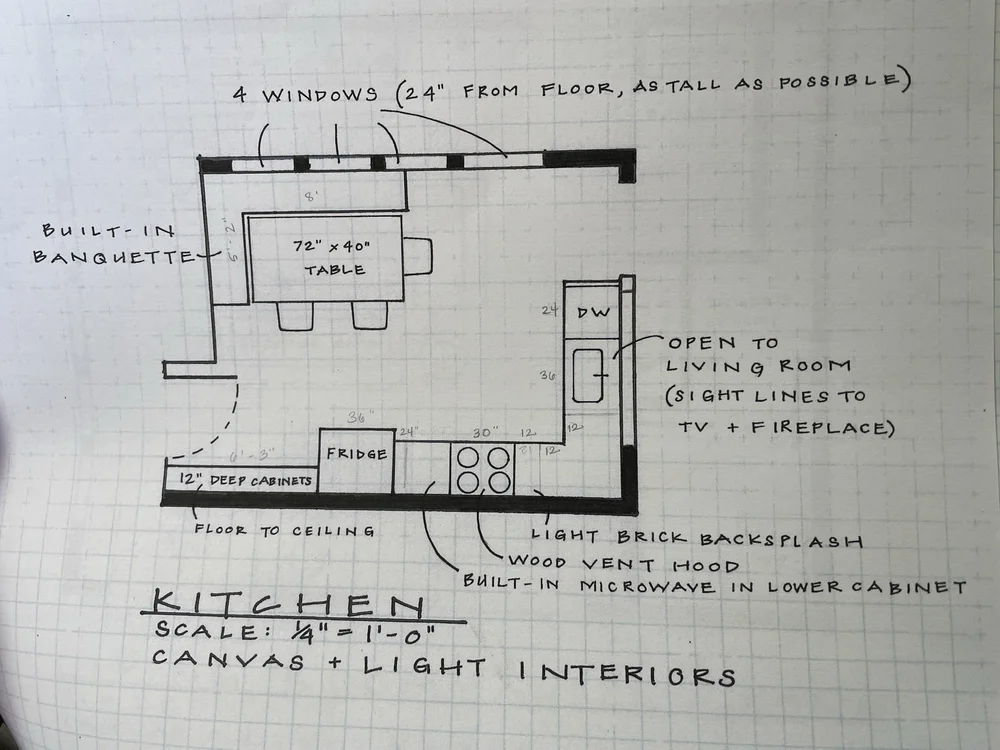 4 WINDOWS (24" FROM FLOOR, AS TALL AS POSSIBLE)
8'
BUILT-IN
BANQUETTE
6'-2"
72" x 40"
TABLE
24
DW
36
OPEN TO
LIVING ROOM
(SIGHT LINES TO
TV + FIREPLACE)
36"
24"
30"
12
12
12
6'-3"
FRIDGE
12" DEEP CABINETS
FLOOR TO CEILING
LIGHT BRICK BACKSPLASH
WOOD VENT HOOD
BUILT-IN MICROWAVE IN LOWER CABINET
KITCHEN
SCALE: ¼" = 1'-0"
CANVAS + LIGHT INTERIORS